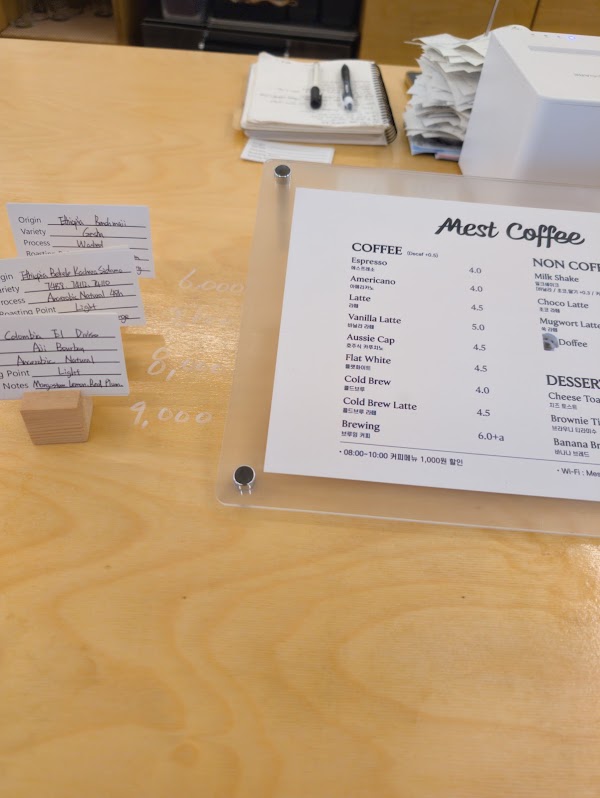 Origin Ethiopia Bench maji
Variety Gesha
Process Washed
Ethiopia
74158
Process Anaerobic Natural
Roasting Point Light
Colombia El Diviso
Aji Bourbon
Anaerobic Natural
g Point Light
Notes Mangosteen Lemon, Red Plum
6,000
8,000
9,000
Mest Coffee
COFFEE (Decaf +0.5)
Espresso 4.0
에스프레소
Americano 4.0
아메리카노
Latte 4.5
라떼
Vanilla Latte 5.0
바닐라 라떼
Aussie Cap 4.5
호주식 카푸치노
Flat White 4.5
플랫화이트
Cold Brew 4.0
콜드브루
Cold Brew Latte 4.5
콜드브루 라떼
Brewing 6.0+a
브루잉 커피
• 08:00-10:00 커피메뉴 1,000원 할인
NON COFF
Milk Shake
밀크쉐이크
Choco Latte
초코 라떼
Mugwort Latte
쑥 라떼
Doffee
DESSERT
Cheese Toa
치즈 토스트
Brownie Ti
브라우니 티라미수
Banana Br
바나나 브레드
• Wi-Fi : Mes